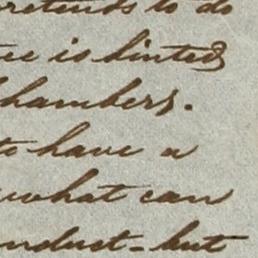 pretends to do
is hinted
Chambers.
to have a
what can
conduct - but